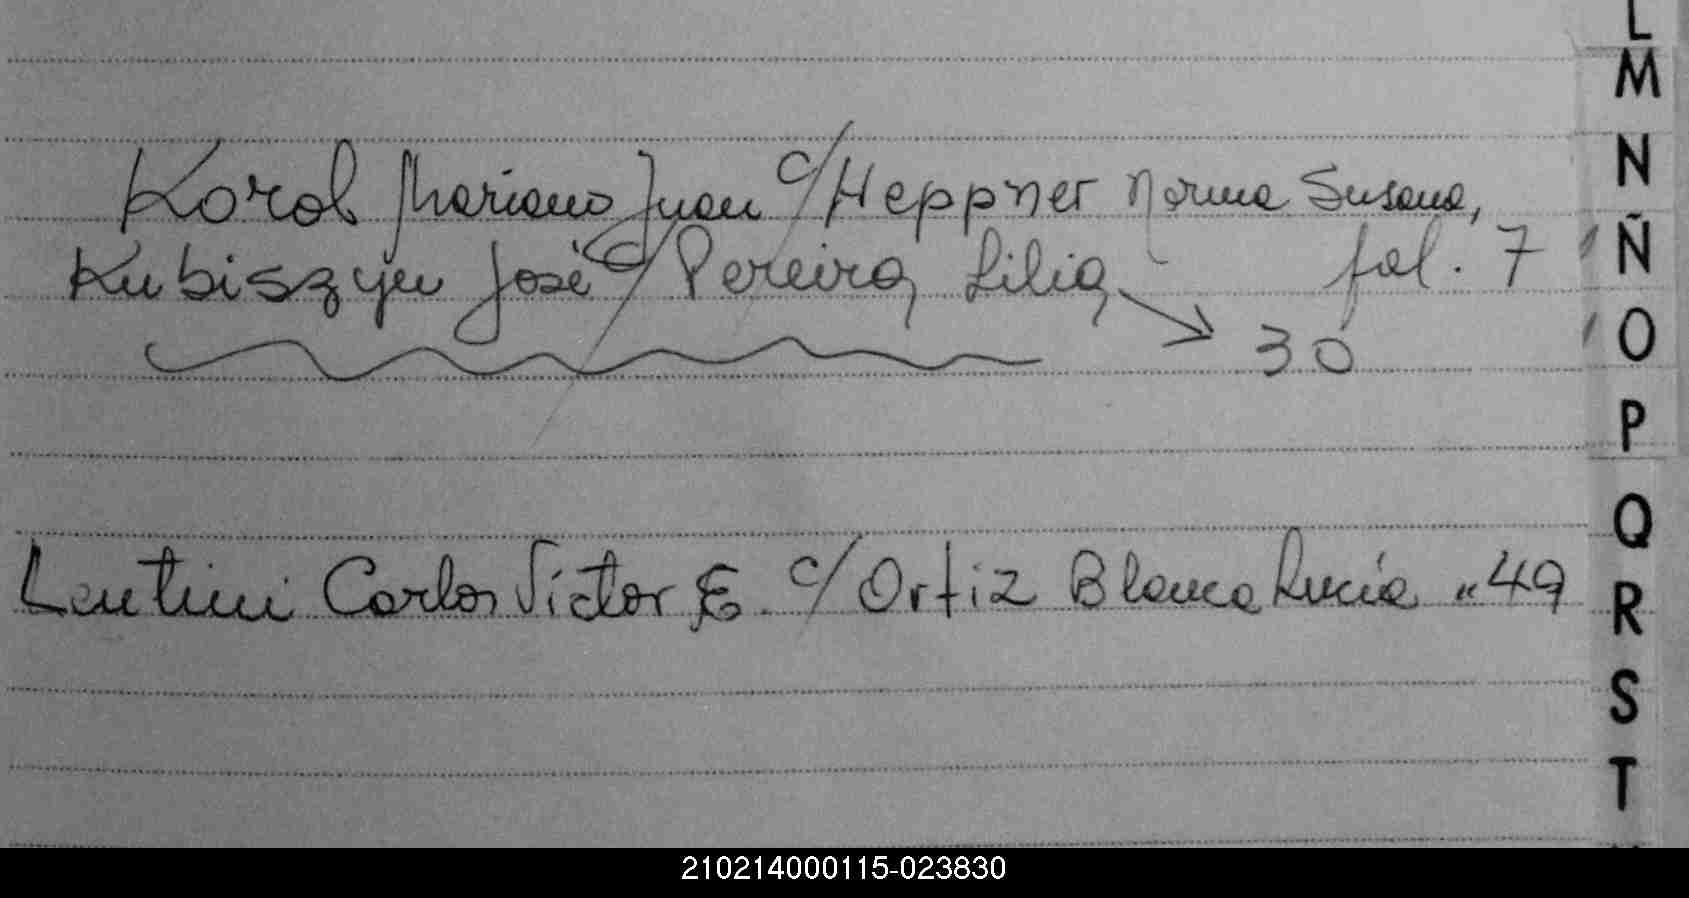 L
M
N
Ñ
O
P
Q
R
S
T
Korol Mariano Juan c/ Heppner Norma Susana,
Kubiszyn José c/ Pereira, Lilia, fol. 7
30
Lentini Carlos Victor E. c/ Ortiz Blanca Lucía " 49
210214000115-023830